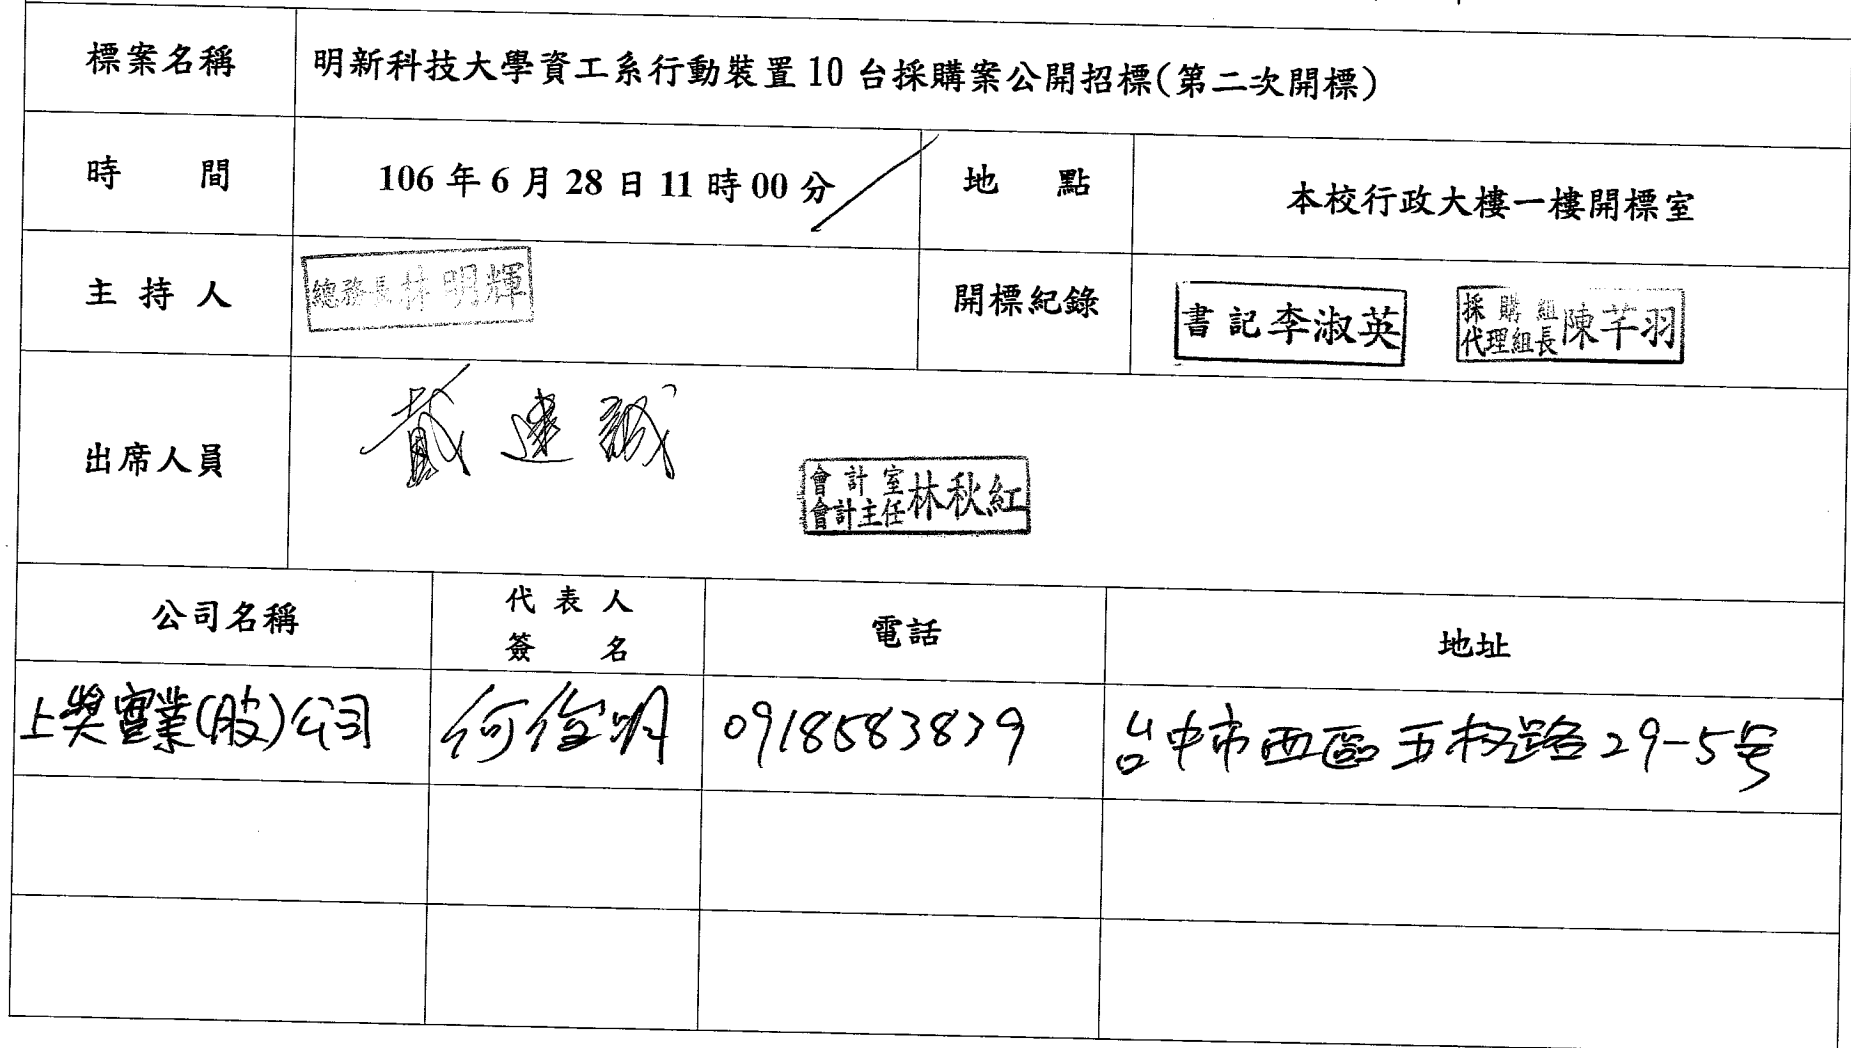 標案名稱 明新科技大學資工系行動裝置10台採購案公開招標(第二次開標)
時 間 106年6月28日11時00分 地 點 本校行政大樓一樓開標室
主持人 總務長林明輝 開標紀錄 書記李淑英 採購組代理組長陳芊羽
出席人員 戴達誠
會計室會計主任林秋紅
公司名稱 代表人簽名 電話 地址
上奨實業(股)公司 何俊明 0918583839 台中市西區五权路29-5号